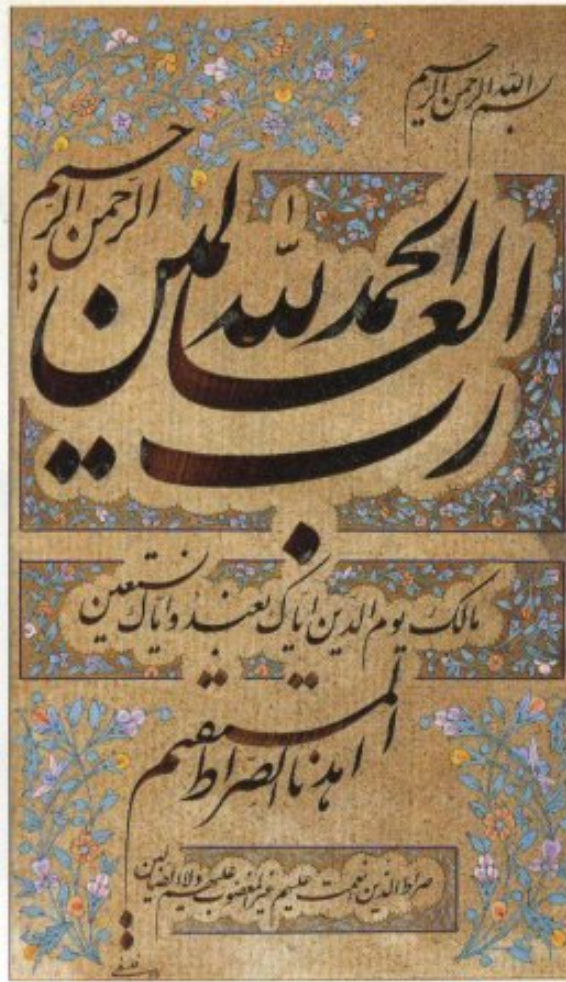 بسم الله الرحمن الرحیم
الحمد لله رب العالمین
الرحمن الرحیم
مالک یوم الدین ایاک نعبد و ایاک نستعین
اهدنا الصراط المستقیم
صراط الذین انعمت علیهم غیر المغضوب علیهم ولا الضالین